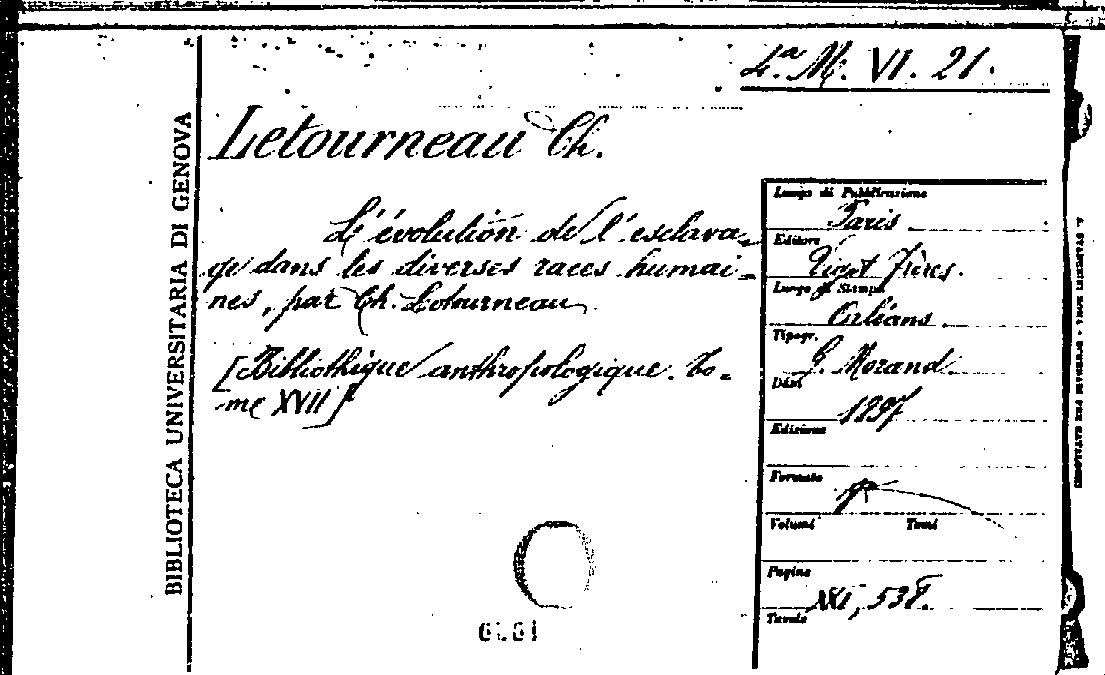 4.ª M. VI. 21.
BIBLIOTECA UNIVERSITARIA DI GENOVA
Letourneau Ch.
L'évolution de l'esclava-
ge dans les diverses races humai-
nes, par Ch. Letourneau
[Bibliothèque anthropologique. To-
me XVII]
Luogo di Pubblicazione
Paris
Editore
Vigot Frères.
Luogo di Stampa
Orléans.
Tipogr.
G. Morand
Data
1897
Edizione
Formato
8º
Volumi Tomi
Pagine
XXI, 538.
Tavole